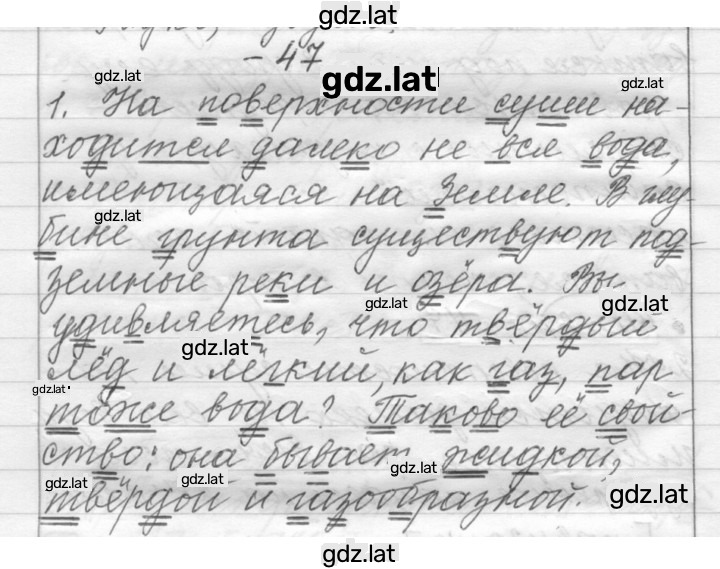 gdz.lat
- 47
gdz.lat gdz.lat gdz.lat
1. На поверхности суши на-
ходится далеко не вся вода,
имеющаяся на Земле. В глу-
gdz.lat
бине грунта существуют под-
земные реки и озёра. Вы
gdz.lat gdz.lat
удивляетесь, что твёрдый
gdz.lat
лёд и лёгкий, как газ, пар
gdz.lat
тоже вода? Таково её свой-
ство: она бывает жидкой,
gdz.lat
gdz.lat gdz.lat gdz.lat
твёрдой и газообразной.
gdz.lat